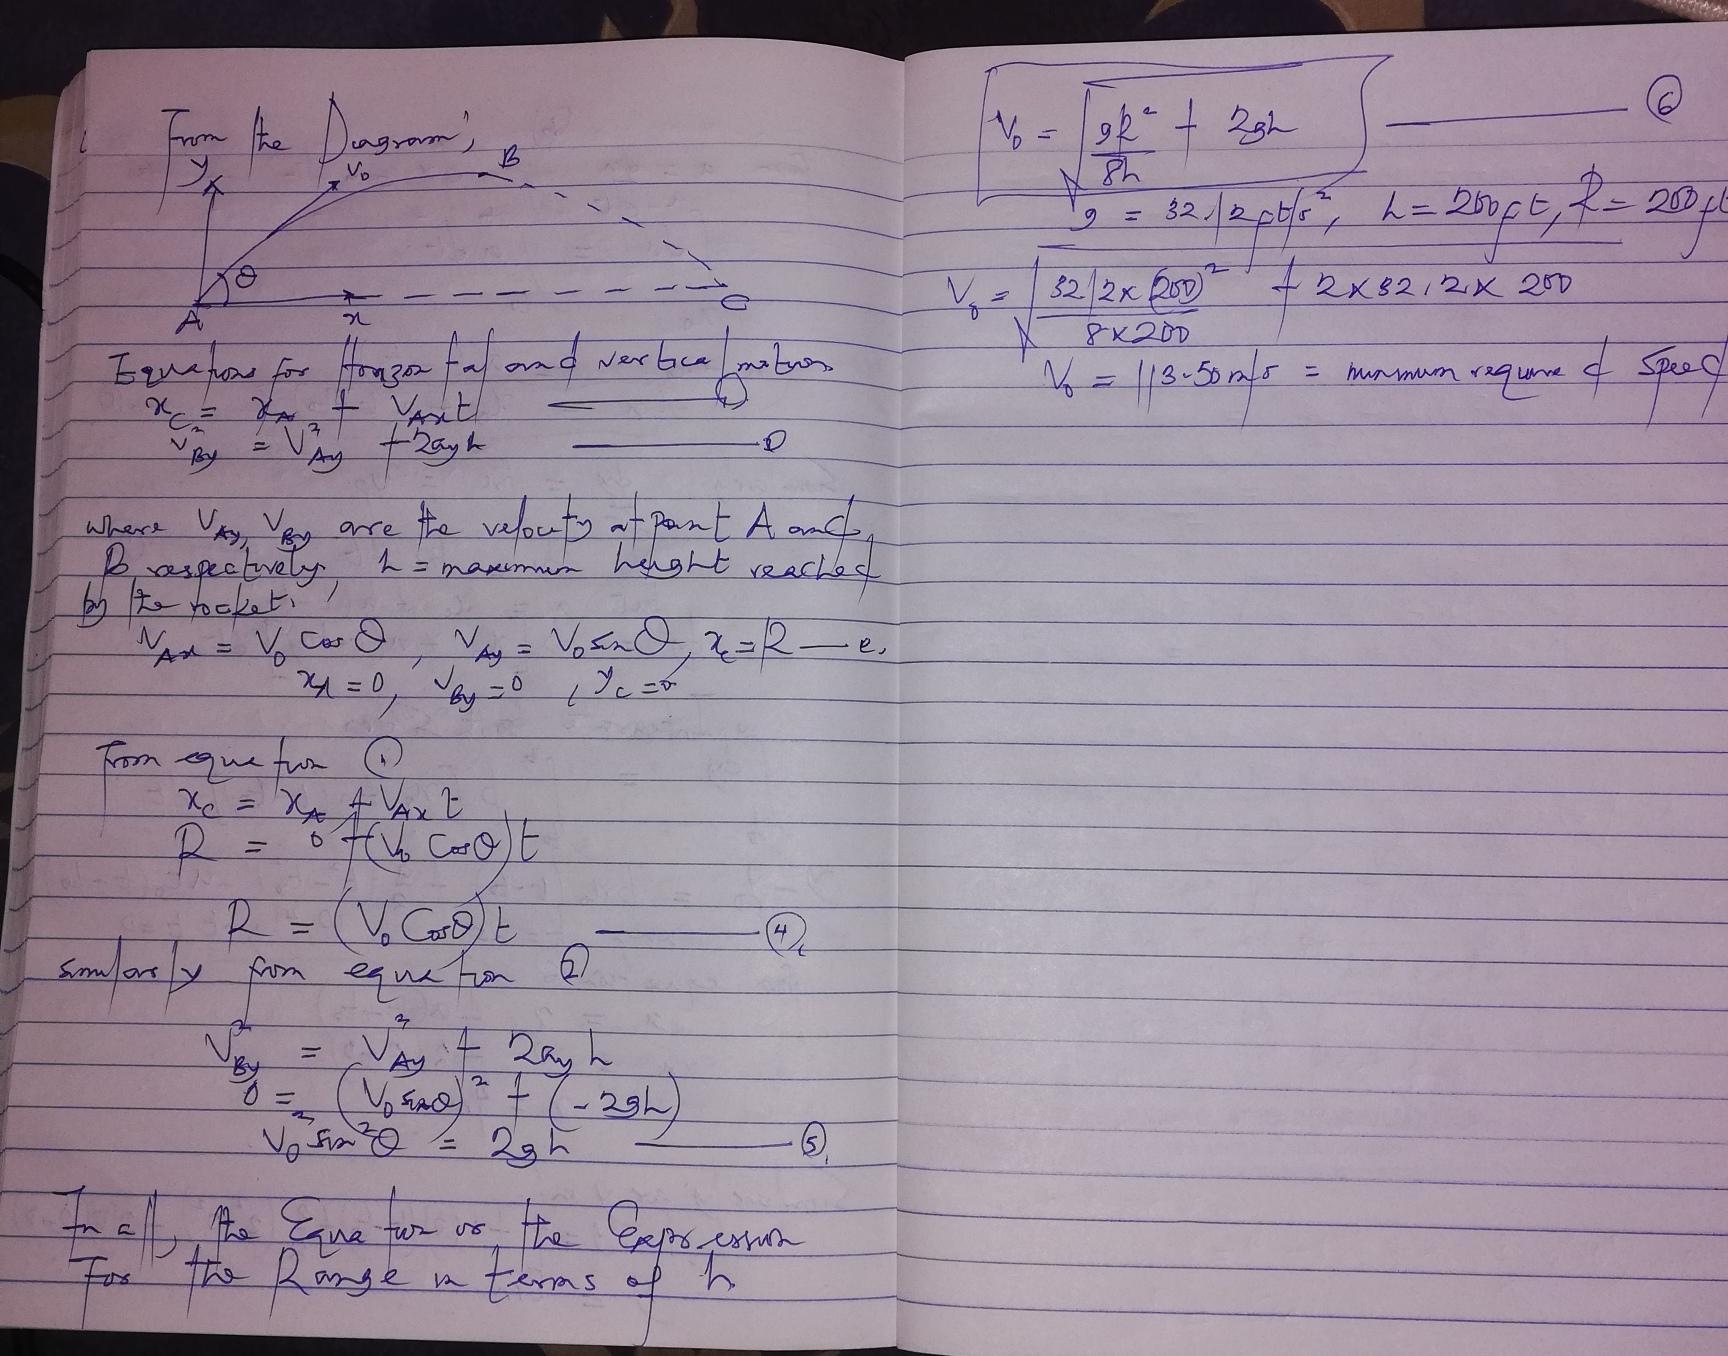 From the Diagram;
y
V₀
B
θ
A
x
C
Equations for Horizontal and vertical motion
x_C = x_A + V_Ax t ——— 1
V²_By = V²_Ay + 2a_y h ———
where V_Ay, V_By are the velocity at point A and
B respectively, h = maximum height reached
by the rocket.
V_Ax = V₀ Cos θ, V_Ay = V₀ sin θ, x_C = R —
x_A = 0, V_By = 0, y_C = 0
From equation ①
x_C = x_A + V_Ax t
R = 0 + (V₀ Cos θ) t
R = (V₀ Cos θ) t ——— ④
Similarly from equation ②
V²_By = V²_Ay + 2a_y h
0 = (V₀ sin θ)² + (-2gh)
V₀² sin² θ = 2gh ——— ⑤
In all, the Equation or the Expression
For the Range in terms of h
V₀ = √(gR²/8h + 2gh) ——— ⑥
g = 32.2 ft/s², h = 200 ft, R = 200 ft
V₀ = √(32.2 x (200)²/8 x 200 + 2 x 32.2 x 200)
V₀ = 113.50 m/s = minimum required speed